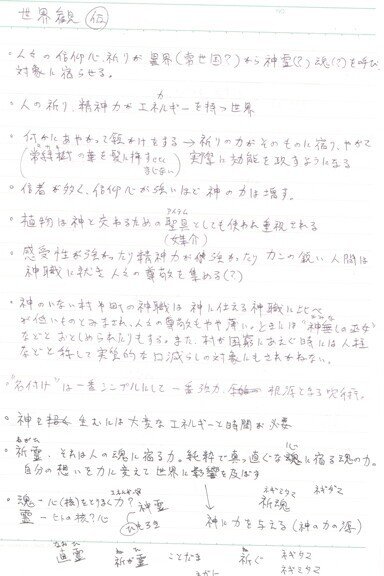 世界観 仮
・人々の信仰心、祈りが異界(常世国?)から神霊(?)魂(?)を呼び
対象に宿らせる。
・人の祈り、精神力がエネルギーを持つ世界
力
・何かにあやかって願かけをする→祈りの力がそのものに宿り、やがて
(の葉を髪に挿すetc 実際に効能を現すようになる
まじない
・信者が多く、信仰心が強いほど神の力は増す。
・植物は神と交わるための聖具としても使われ重視される
アイテム
(媒介)
・感受性が強かったり精神力が強かったりカンの鋭い人間は
神職に就き人々の尊敬を集める(?)
・神のいない村や町の神職は神に仕える神職に比べ
が低いものとみなされ、人々の尊敬もやや薄い。ときには"神無しの巫女"
などとおとしめられたりもする。また、村が困窮にあえぐ時には人柱
などと称して実質的な口減らしの対象にもされかねない。
・"名付け"は一番シンプルにして一番強力、根源となる呪術。
・神を生むには大変なエネルギーと時間が必要
・祈霊、それは人の魂に宿る力。純粋で真っ直ぐな魂に宿る魂の力。
自分の想いを力に変えて世界に影響を及ぼす
・魂-心(核)をとりまく力? 神霊 祈魂
霊-ヒトの核?心
神に力を与える(神の力の源)
直霊 祈が霊 ことだま 祈ぐ ネギタマ
ネギミタマ